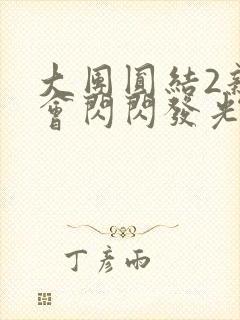 大團圓結2新
會閃閃發光
丁彥雨